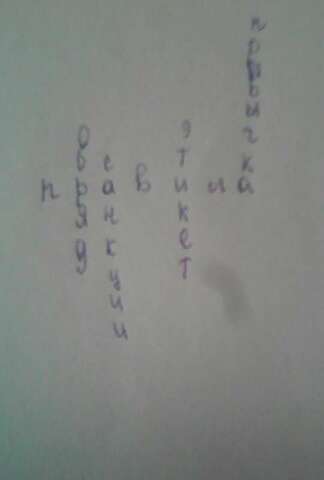 правила
обряд
санкции
этикет
привычка